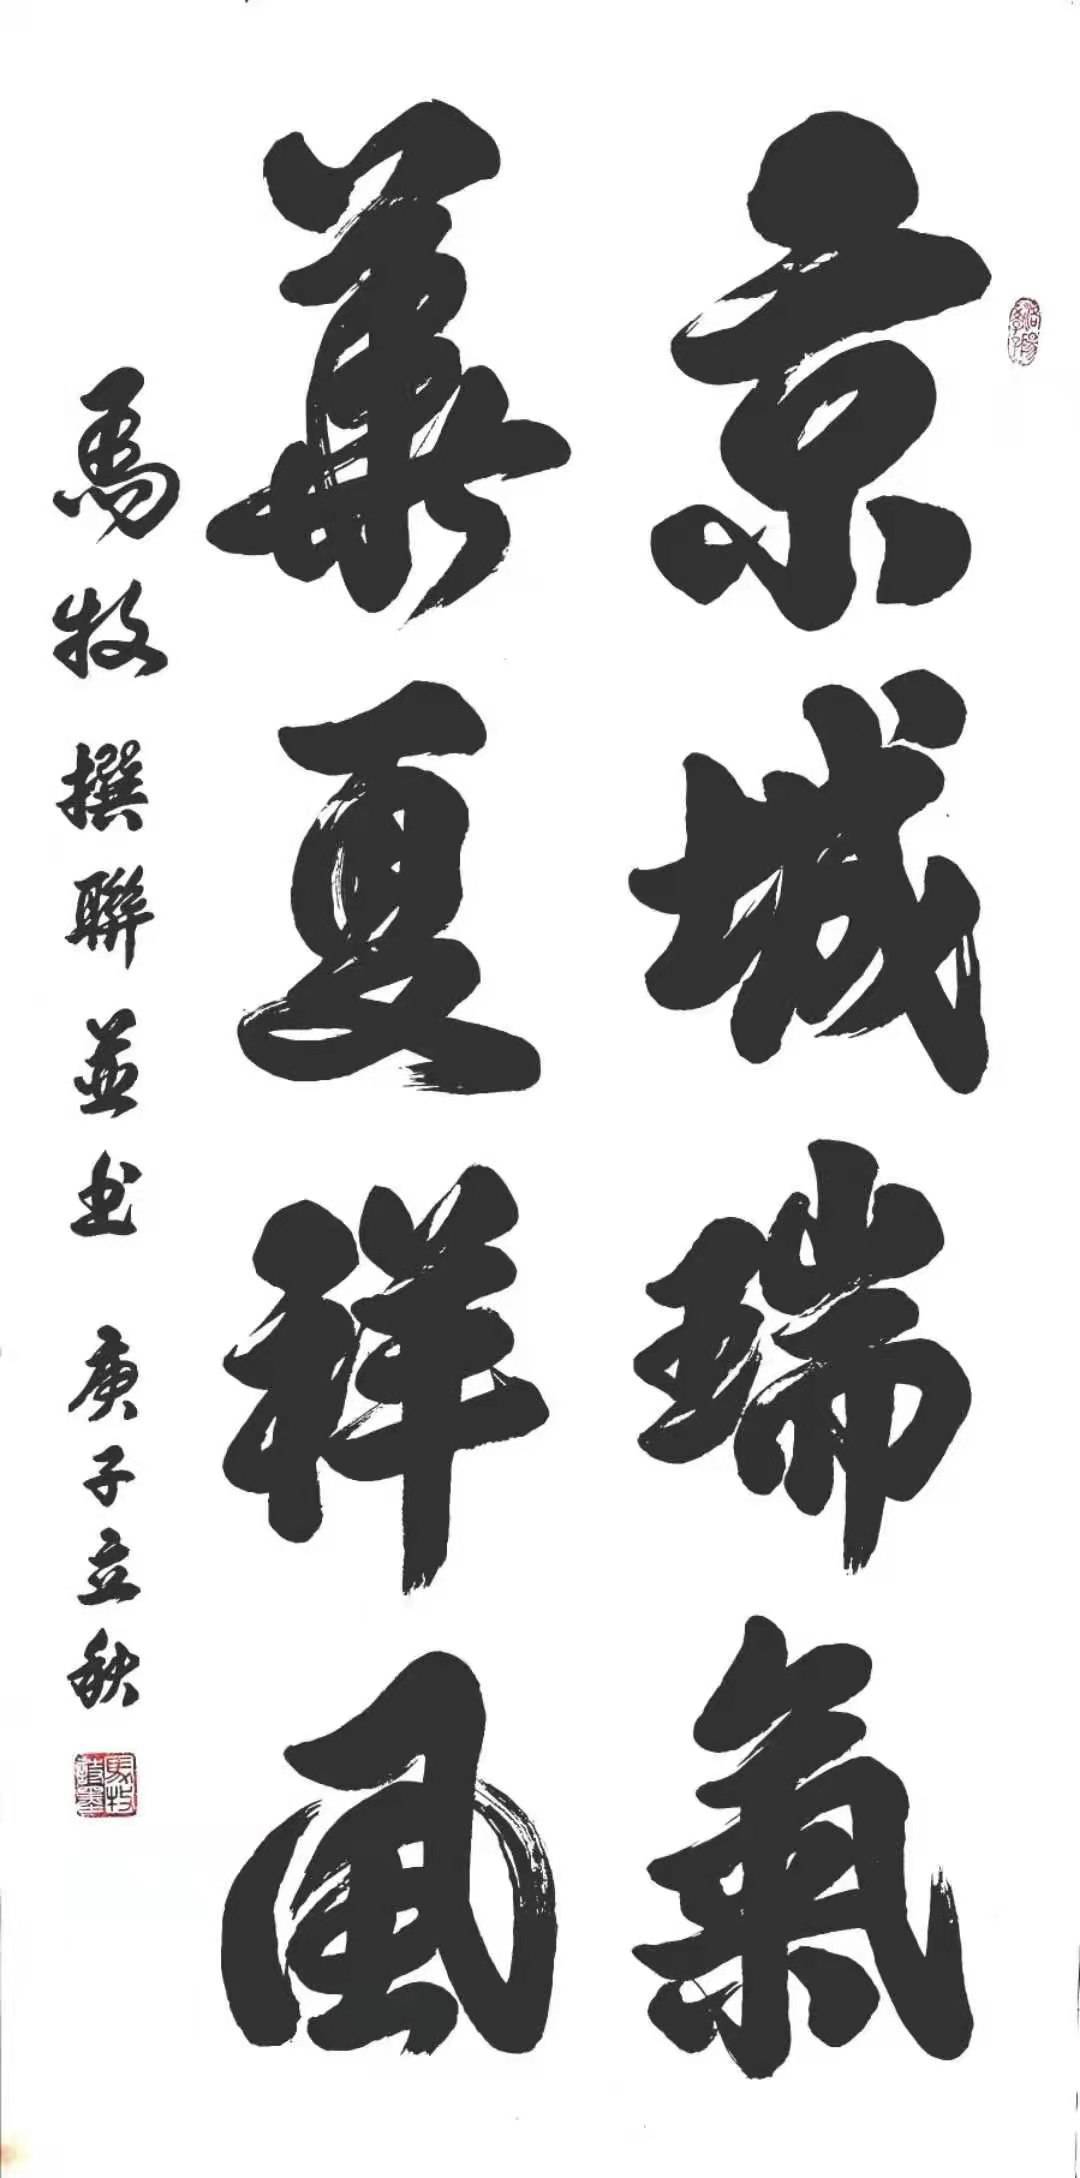 京城瑞氣
華夏祥風
馬牧撰聯並书 庚子立秋